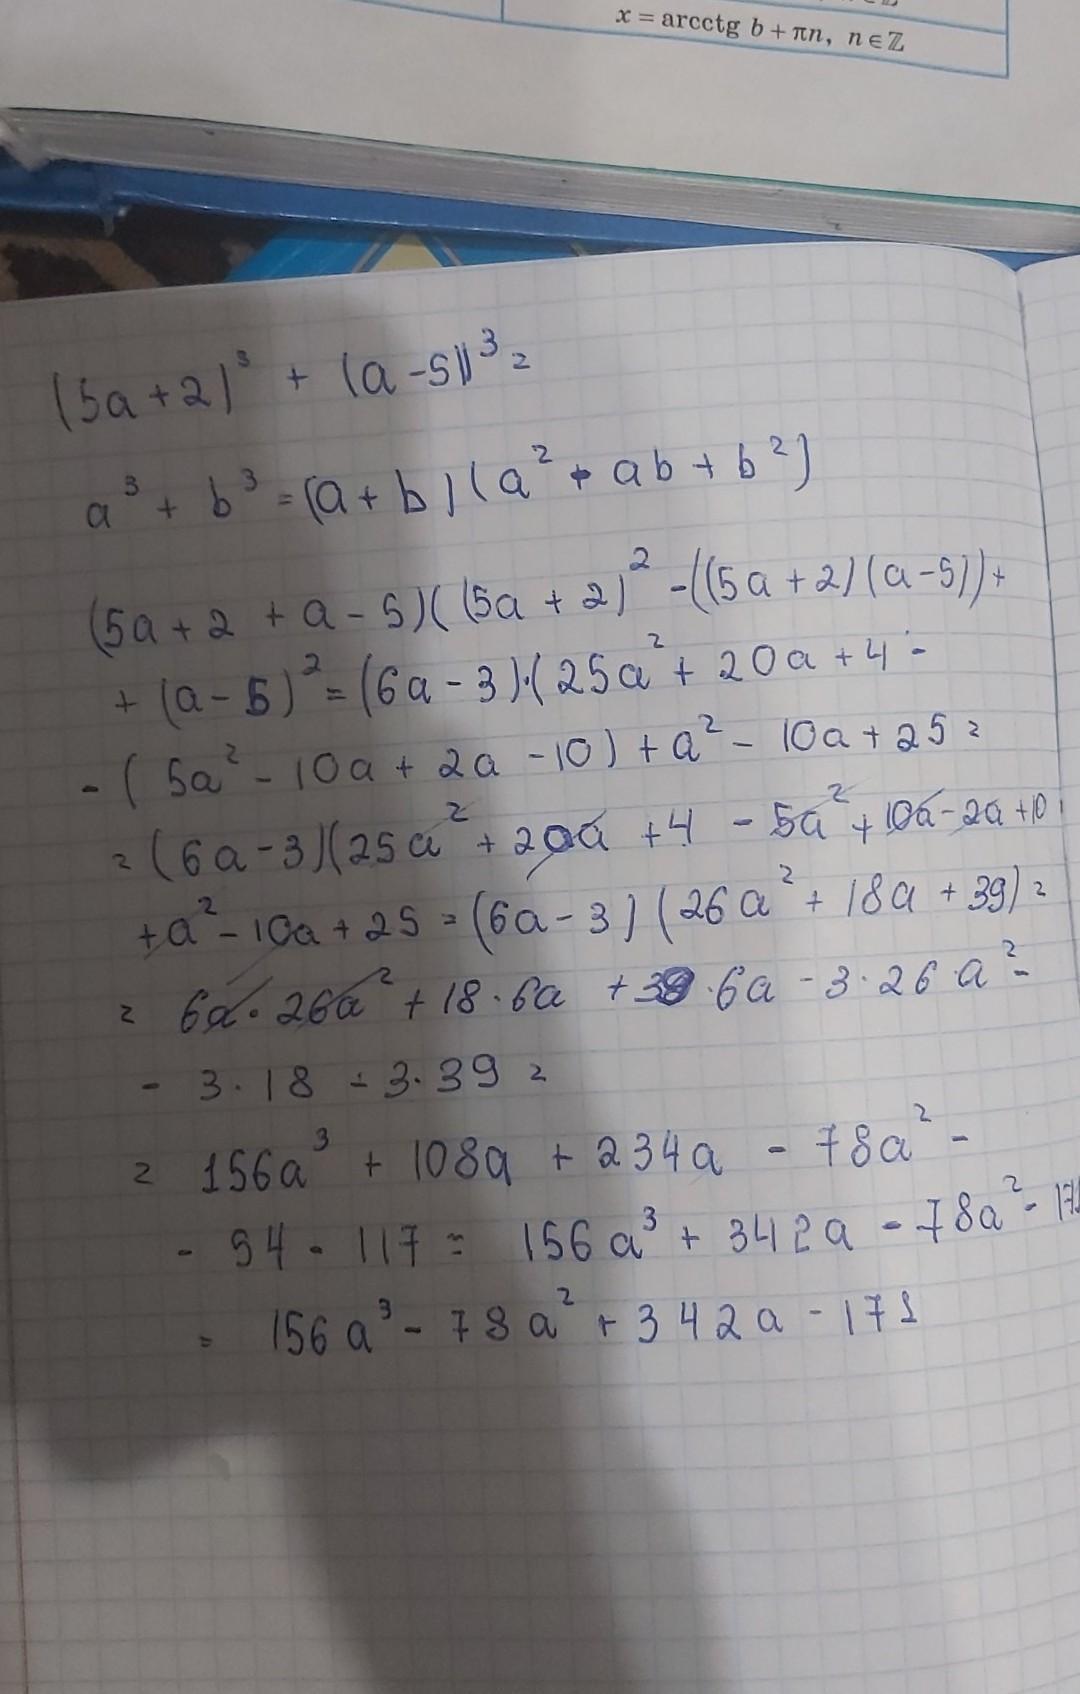 x = arcctg b + πn, n ∈ ℤ
(5a + 2)³ + (a - 5))³ =
a³ + b³ = (a + b)(a² - ab + b²)
(5a + 2 + a - 5)((5a + 2)² - ((5a + 2)(a - 5)) +
+ (a - 5)² = (6a - 3)·(25a² + 20a + 4 -
- (5a² - 10a + 2a - 10) + a² - 10a + 25 =
= (6a - 3)(25a² + 20a + 4 - 5a² + 10a - 2a + 10
+ a² - 10a + 25 = (6a - 3)(26a² + 18a + 39) =
= 6a · 26a² + 18 · 6a + 39 · 6a - 3 · 26 · a² -
- 3 · 18 - 3 · 39 =
= 156a³ + 108a + 234a - 78a² -
- 54 - 117 = 156a³ + 342a - 78a² - 171
= 156a³ - 78a² + 342a - 171